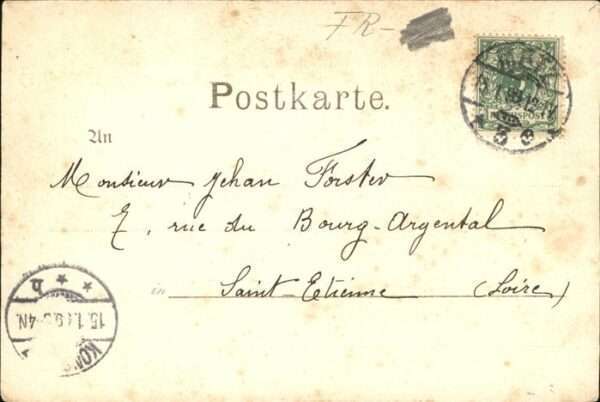 FR-
Postkarte.
An
Monsieur Jehan Forster
7, rue du Bourg-Argental
in Saint-Etienne (Loire)